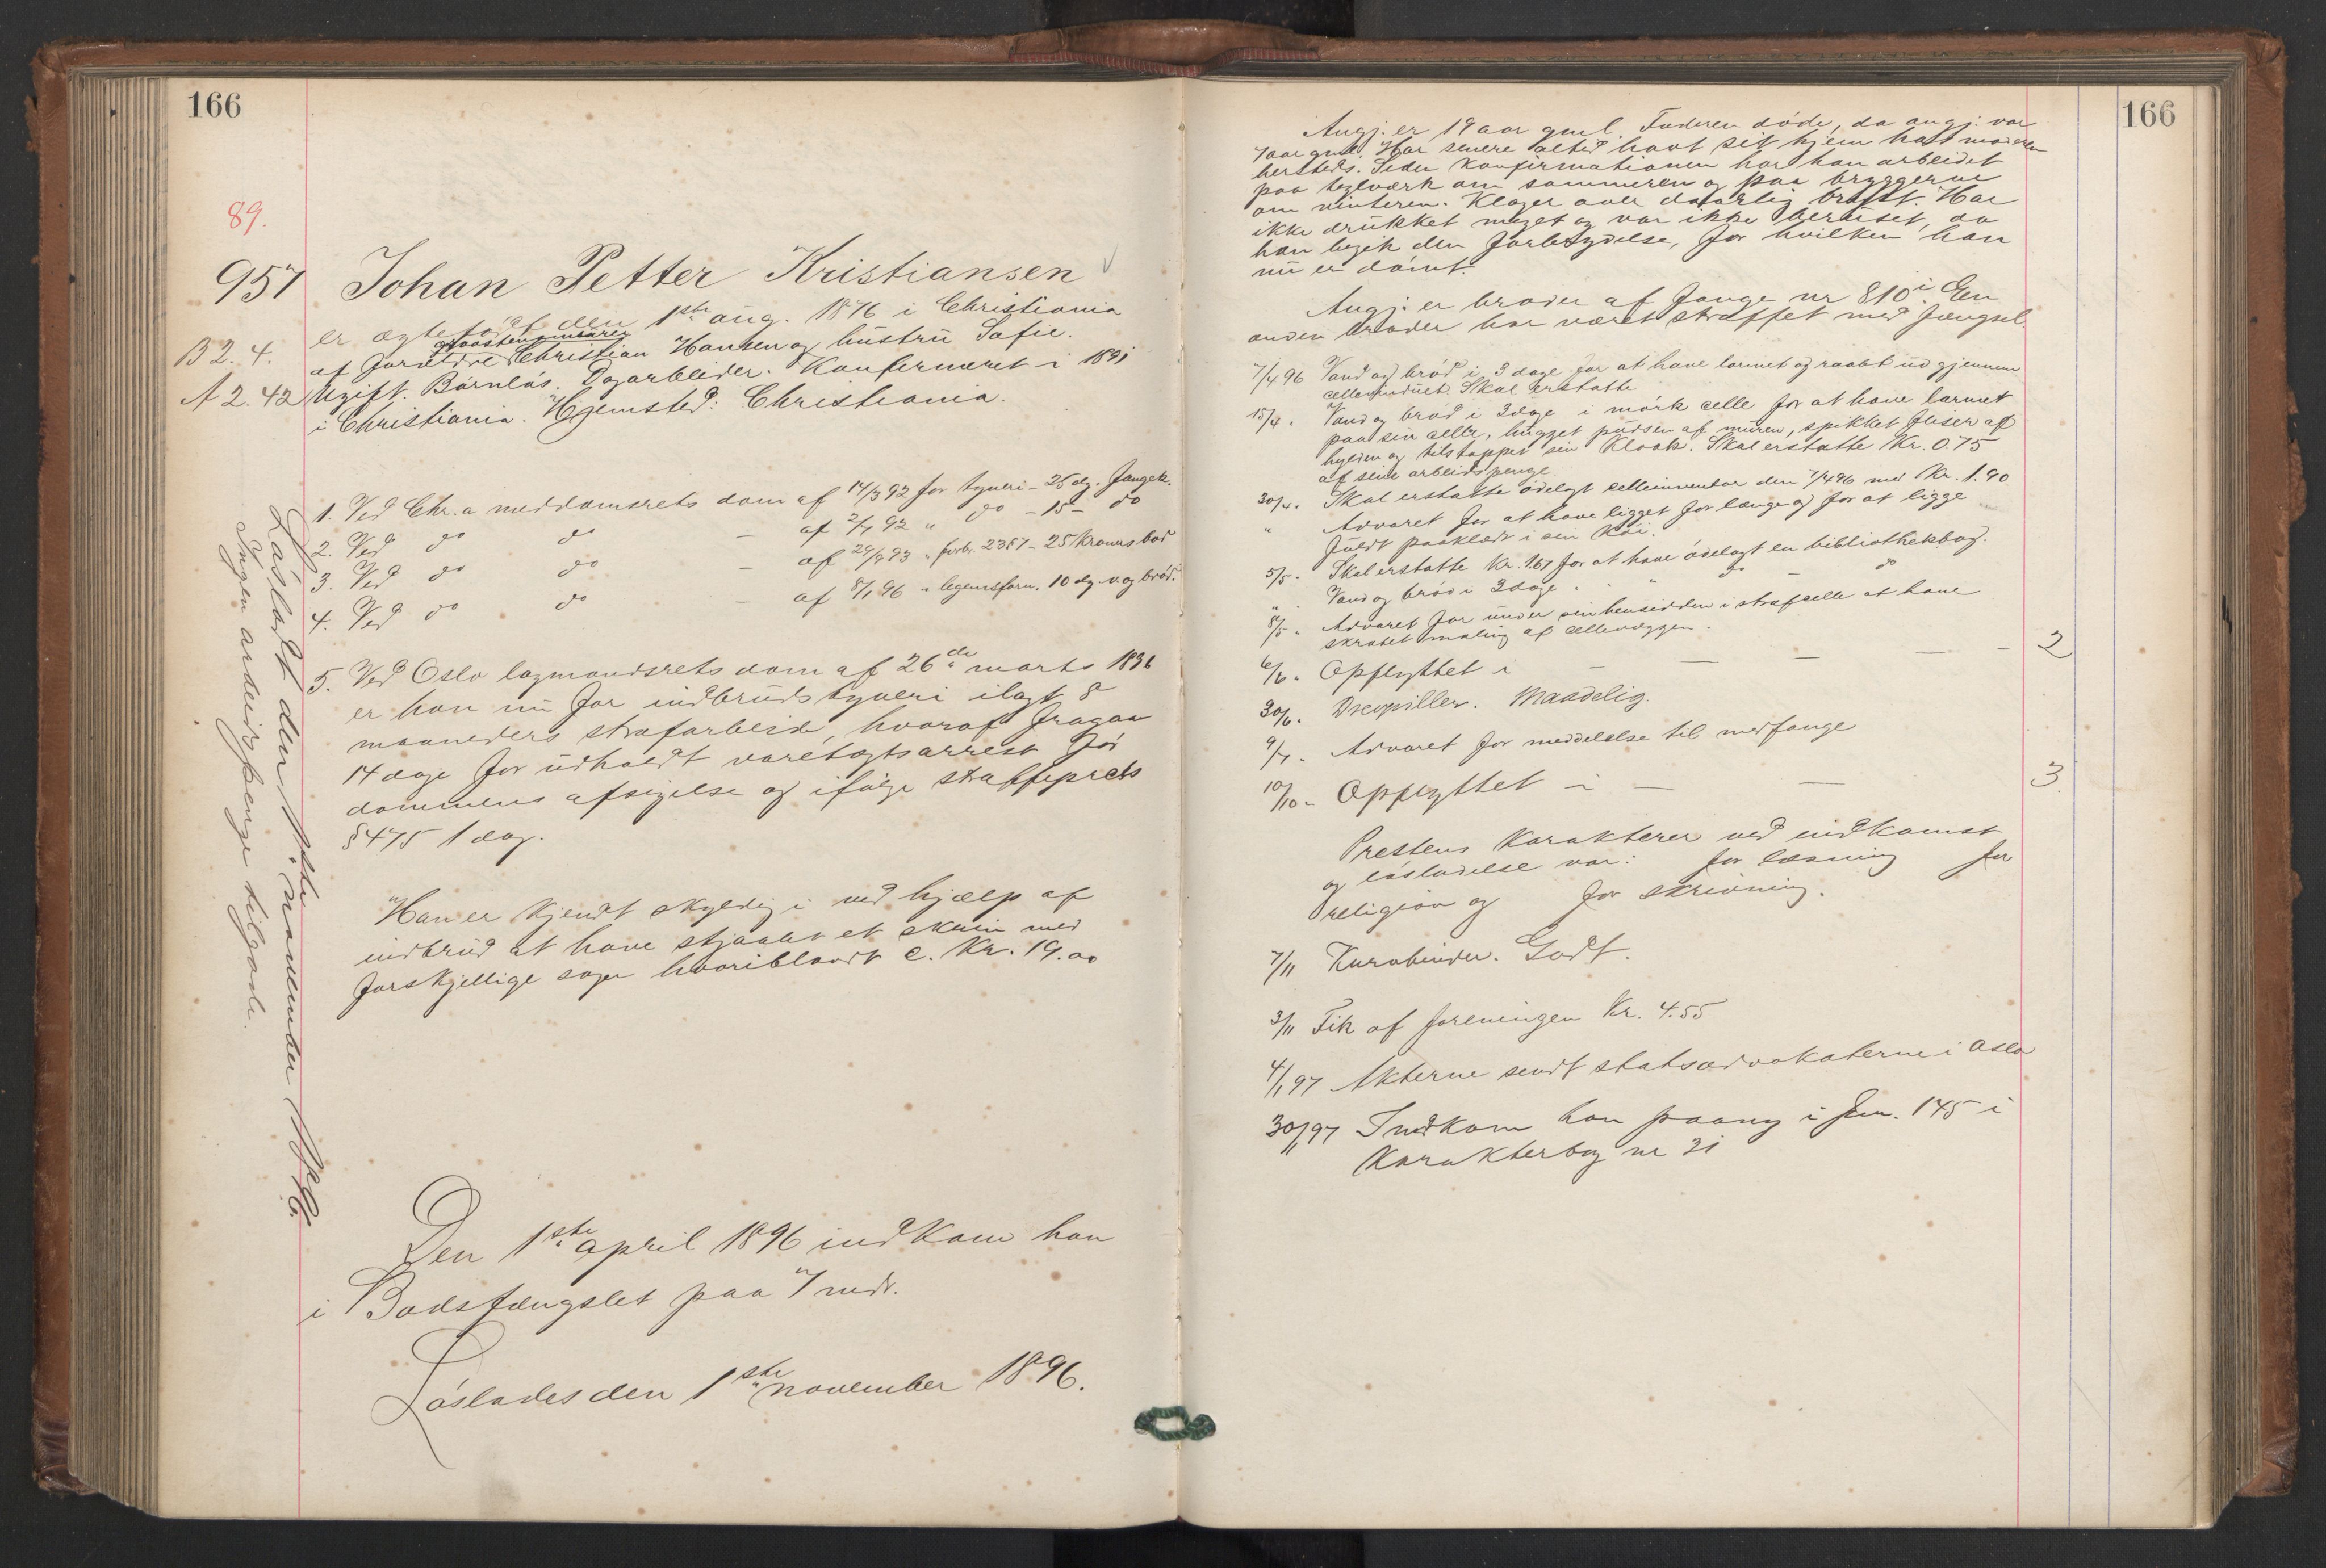 166
89.
957 Johan Petter Kristiansen
er ægtefødt den 1ste aug. 1876 i Christiania
B 2. 4. af forældre Christian Hansen og hustru Sofie.
A 2. 42 Ugift. Barnløs. Dagarbeider. Konfirmeret i 1891
i Christiania. Hjemsted: Christiania.
1. Ved Chr.a meddomsrets dom af 14/3 92 for tyveri - 25 dg. fængsel.
2. Ved do do - af 2/7 92 " do - 15 - do
3. Ved do do - af 29/9 93 " forbr. 2357 - 25 Kroners bod
4. Ved do do - af 8/1 96 " legemsforn. 10 dg. v. og brød.
5. Ved Oslo lagmandsrets dom af 26de marts 1896
er han nu for indbrudstyveri ilagt 8
maaneders strafarbeide, hvoraf fragaar
14 dage for udholdt varetægtsarrest før
dommens afsigelse og ifølge straffeprcls
§ 475 1 dag.
Han er kjendt skyldig i ved hjælp af
indbrud at have stjaalet et skrin med
forskjellige sager hvoriblandt c. Kr. 19.00
Den 1ste april 1896 indkom han
i Bodsfængslet paa 7 mdr.
Løslades den 1ste november 1896.
Løsladt den 1ste november 1896.
Ingen arbeidspenge tilgode.
166
Angj. er 19 aar gml. Faderen døde, da angj. var
7 aar gml. Har senere altid havt sit hjem hos moderen
hersteds. Siden Konfirmationen har han arbeidet
paa teglværk om sommeren og paa bryggerne
om vinteren. Klager over daarlig bryst. Har
ikke drukket meget og var ikke beruset, da
han begik den forbrydelse, for hvilken han
nu er dømt.
Angj. er broder af fange nr 810 i. En
anden broder har været straffet med fængsel
7/4 96 Vand og brød i 3 dage for at have larmet og raabt ud gjennem
cellevinduet. Skal erstatte
15/4 " Vand og brød i 3 dage i mørk celle for at have larmet
paa sin celle, hugget pudsen af muren, spikket fliser af
hylden og tilstoppet sin Kloak. Skal erstatte Kr. 0.75
af sine arbeidspenge
30/4 " Skal erstatte ødelagt celleinventar den 7/4 96 med Kr. 1.90
" Advaret for at have ligget for længe og for at ligge
fuldt paaklædt i sin Køi.
5/5 " Skal erstatte Kr. 1.67 for at have ødelagt en bibliothekbog.
" Vand og brød i 3 dage " " do do
8/5 " Advaret for under sin hensidden i strafcelle at have
skrabet maling af cellevæggen.
6/6 " Opflyttet i — — — — — 2
30/6 " Drevpiller. Maadelig.
9/7 " Advaret for meddelelse til medfange
10/10 " Opflyttet i — — 3.
Prestens Karakterer ved indkomst
og løsladelse var: for læsning for
religion og for skrivning.
7/11 Kurvbinder. Godt.
3/11 Fik af foreningen Kr. 4.55
4/1 97 Akterne sendt statsadvokaterne i Oslo
30/1 97 Indkom han paany i Jnr. 145 i
Karakterbog nr 31